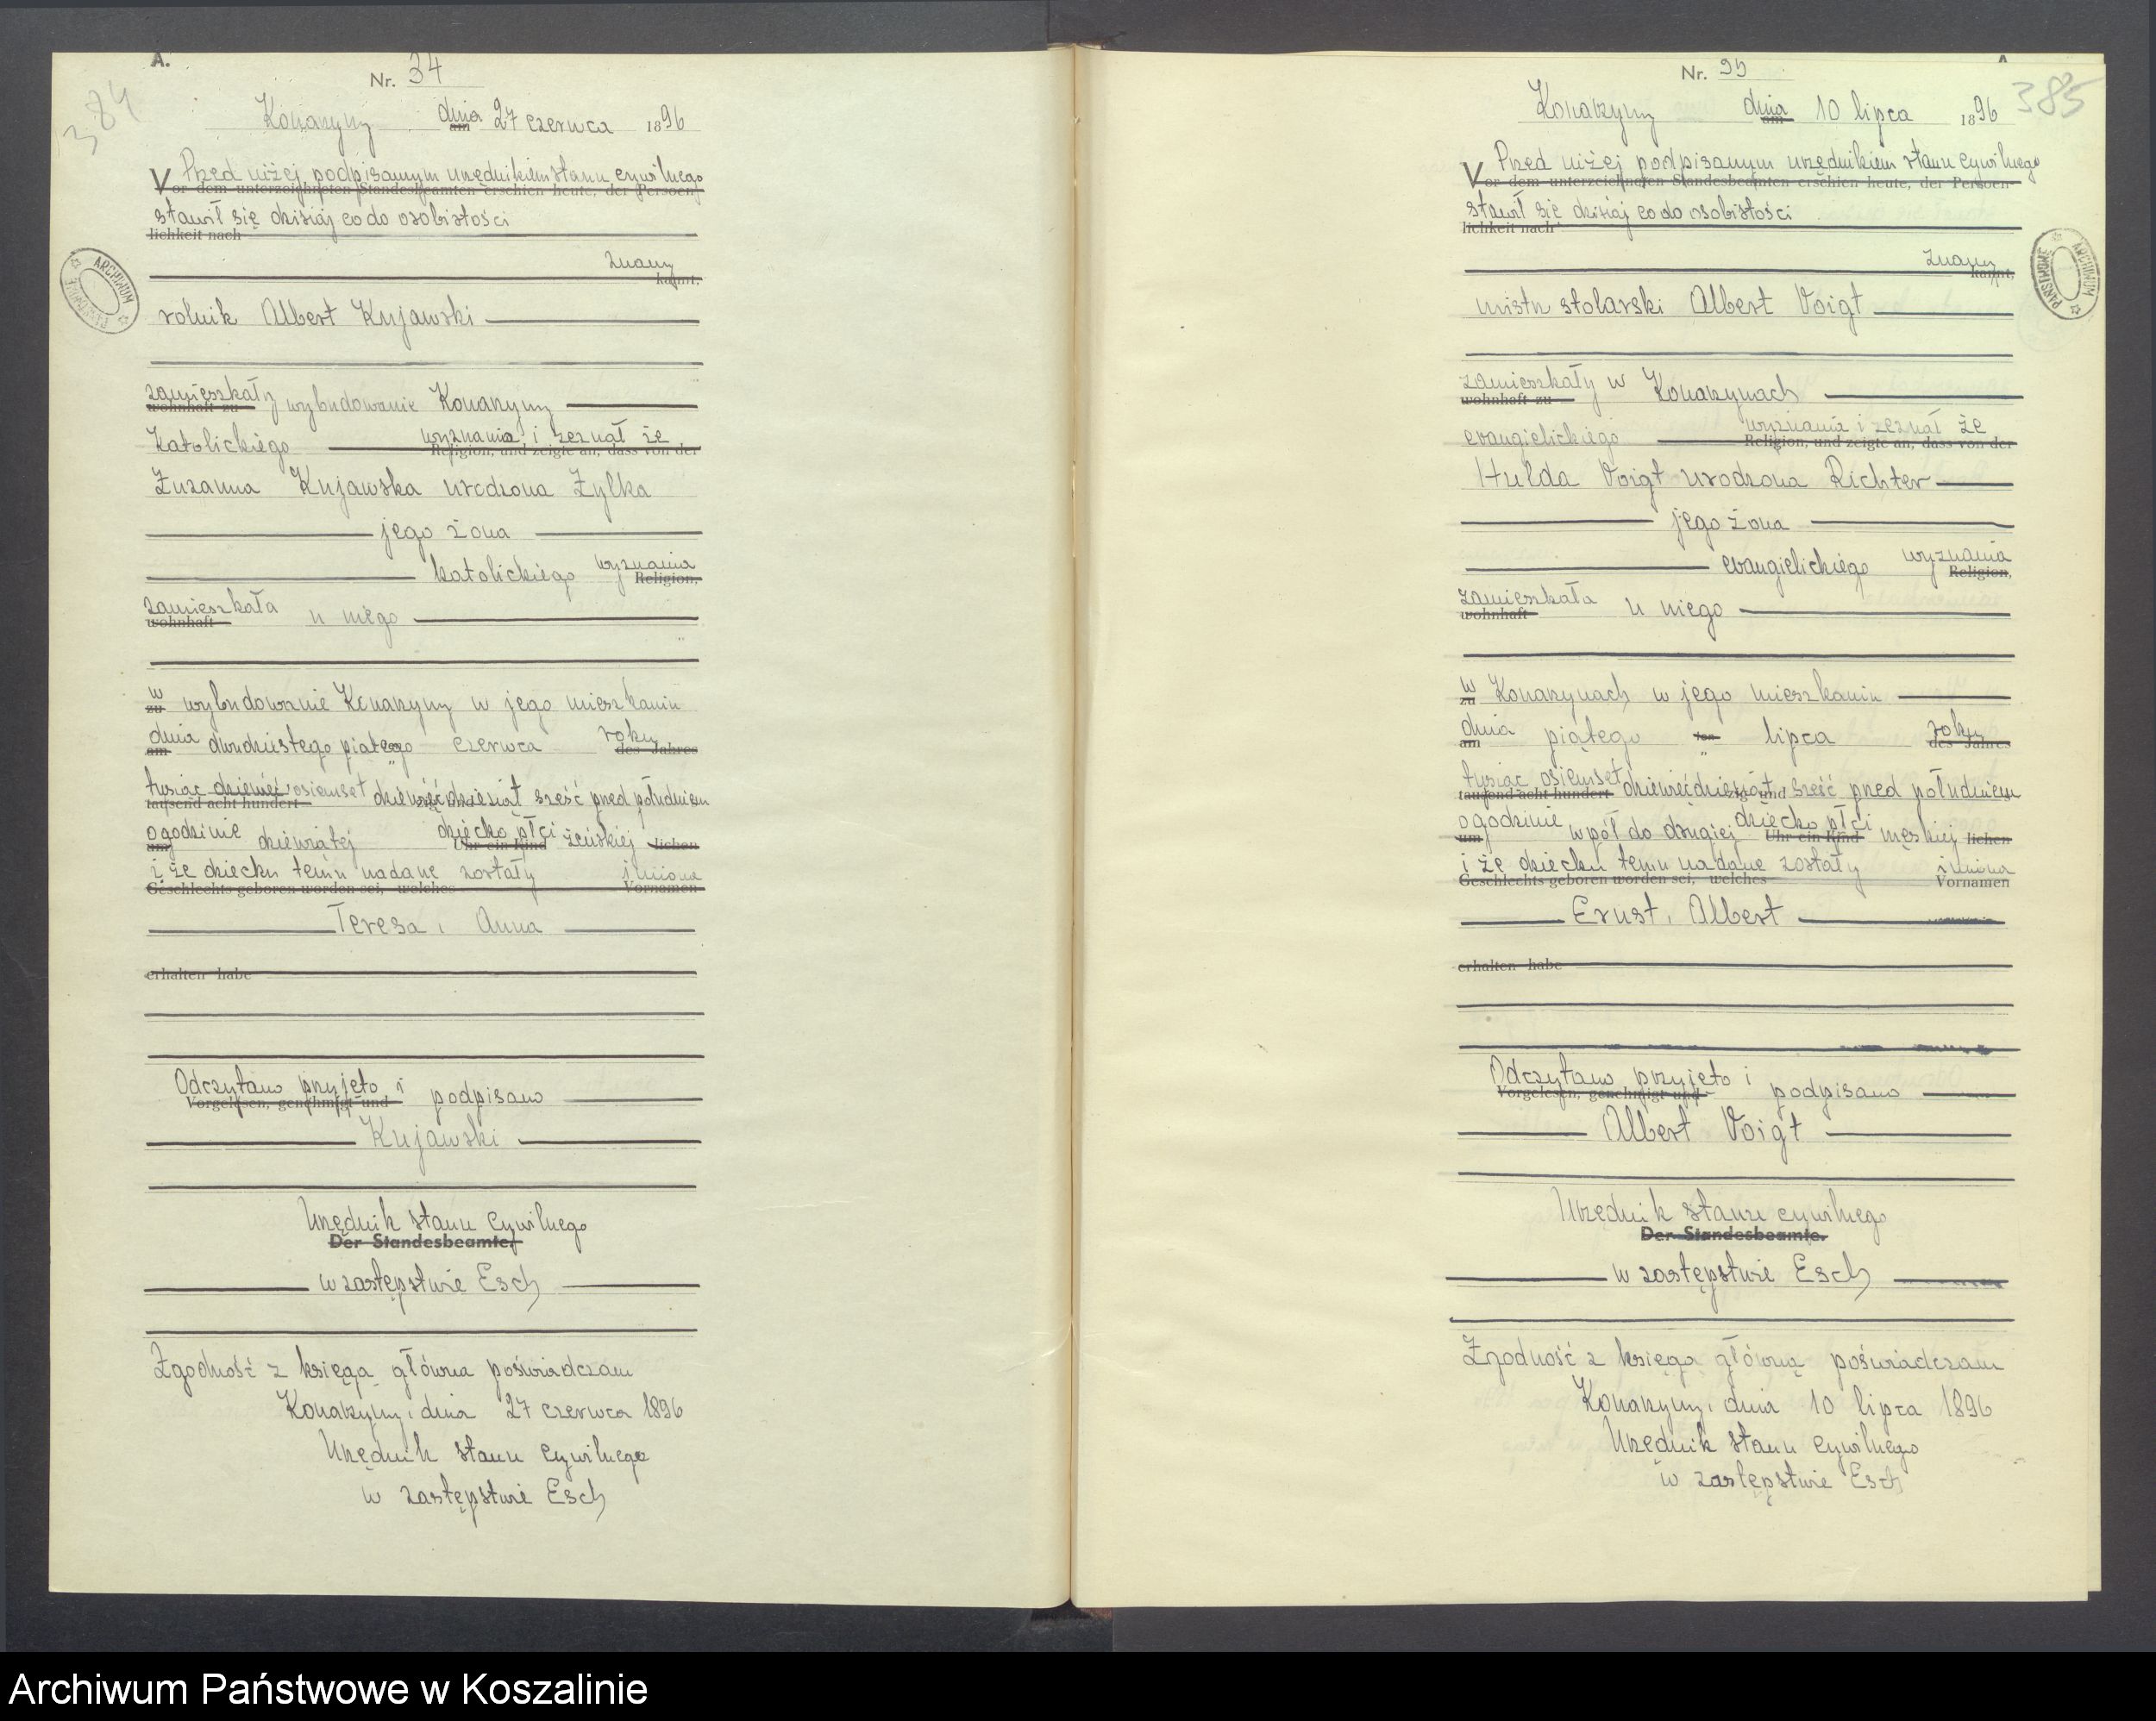 A.
384
Nr. 34
Konarzyny dnia am 27 czerwca 1896
Przed niżej podpisanym urzędnikiem stanu cywilnego
Vor dem unterzeichneten Standesbeamten erschien heute, der Persoen-
stawił się dzisiaj co do osobistości
lichkeit nach
znany
kannt,
rolnik Albert Kujawski
zamieszkały wybudowanie Konarzyny
wohnhaft zu
katolickiego wyznania i zeznał że
Religion, und zeigte an, dass von der
Zuzanna Kujawska urodzona Żylka
jego żona
katolickiego wyznania
Religion,
zamieszkała u niego
wohnhaft
w
zu wybudowanie Konarzyny w jego mieszkaniu
dnia dwudziestego piątego czerwca roku
am des Jahres
tysiąc dziewięć osiemset dziewięćdziesiąt sześć przed południem
tausend acht hundert
o godzinie dziewiątej dziecko płci żeńskiej lichen
um Uhr ein Kind
i że dziecku temu nadane zostały imiona
Geschlechts geboren worden sei, welches Vornamen
Teresa, Anna
erhalten habe
Odczytano przyjęto i podpisano
Vorgelesen, genehmigt und
Kujawski
Urzędnik stanu cywilnego
Der Standesbeamte.
w zastępstwie Esch
Zgodność z księgą główna poświadczam
Konarzyny, dnia 27 czerwca 1896
Urzędnik stanu cywilnego
w zastępstwie Esch
ARCHIWUM PAŃSTWOWE
385
Nr. 35
Konarzyny dnia am 10 lipca 1896
Przed niżej podpisanym urzędnikiem stanu cywilnego
Vor dem unterzeichneten Standesbeamten erschien heute, der Persoen-
stawił się dzisiaj co do osobistości
lichkeit nach
znany
kannt,
mistrz stolarski Albert Voigt
zamieszkały w Konarzynach
wohnhaft zu
evangielickiego wyznania i zeznał że
Religion, und zeigte an, dass von der
Hulda Voigt urodzona Richter
jego żona
evangielickiego wyznania
Religion,
zamieszkała u niego
wohnhaft
w
zu Konarzynach w jego mieszkaniu
dnia piątego ten lipca roku
am des Jahres
tysiąc osiemset dziewięćdziesiąt sześć przed południem
tausend acht hundert zig und
o godzinie wpół do drugiej dziecko płci męskiej lichen
um Uhr ein Kind
i że dziecku temu nadane zostały imiona
Geschlechts geboren worden sei, welches Vornamen
Ernst, Albert
erhalten habe
Odczytano przyjęto i podpisano
Vorgelesen, genehmigt und
Albert Voigt
Urzędnik stanu cywilnego
Der Standesbeamte.
w zastępstwie Esch
Zgodność z księgą główną poświadczam
Konarzyny, dnia 10 lipca 1896
Urzędnik stanu cywilnego
w zastępstwie Esch
ARCHIWUM PAŃSTWOWE
Archiwum Państwowe w Koszalinie